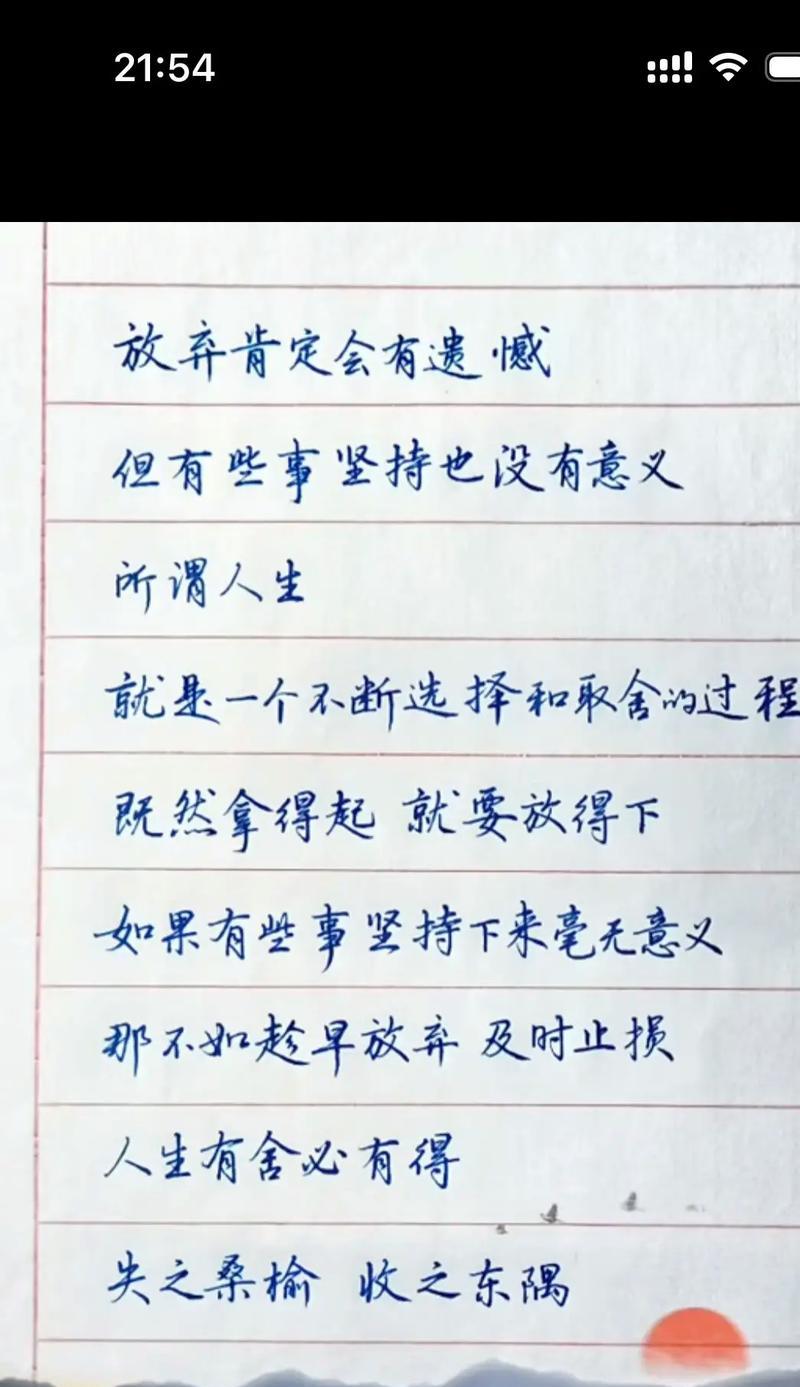 21:54
放弃肯定会有遗憾
但有些事坚持也没有意义
所谓人生
就是一个不断选择和取舍的过程
既然拿得起 就要放得下
如果有些事坚持下来毫无意义
那不如趁早放弃 及时止损
人生有舍必有得
失之桑榆 收之东隅